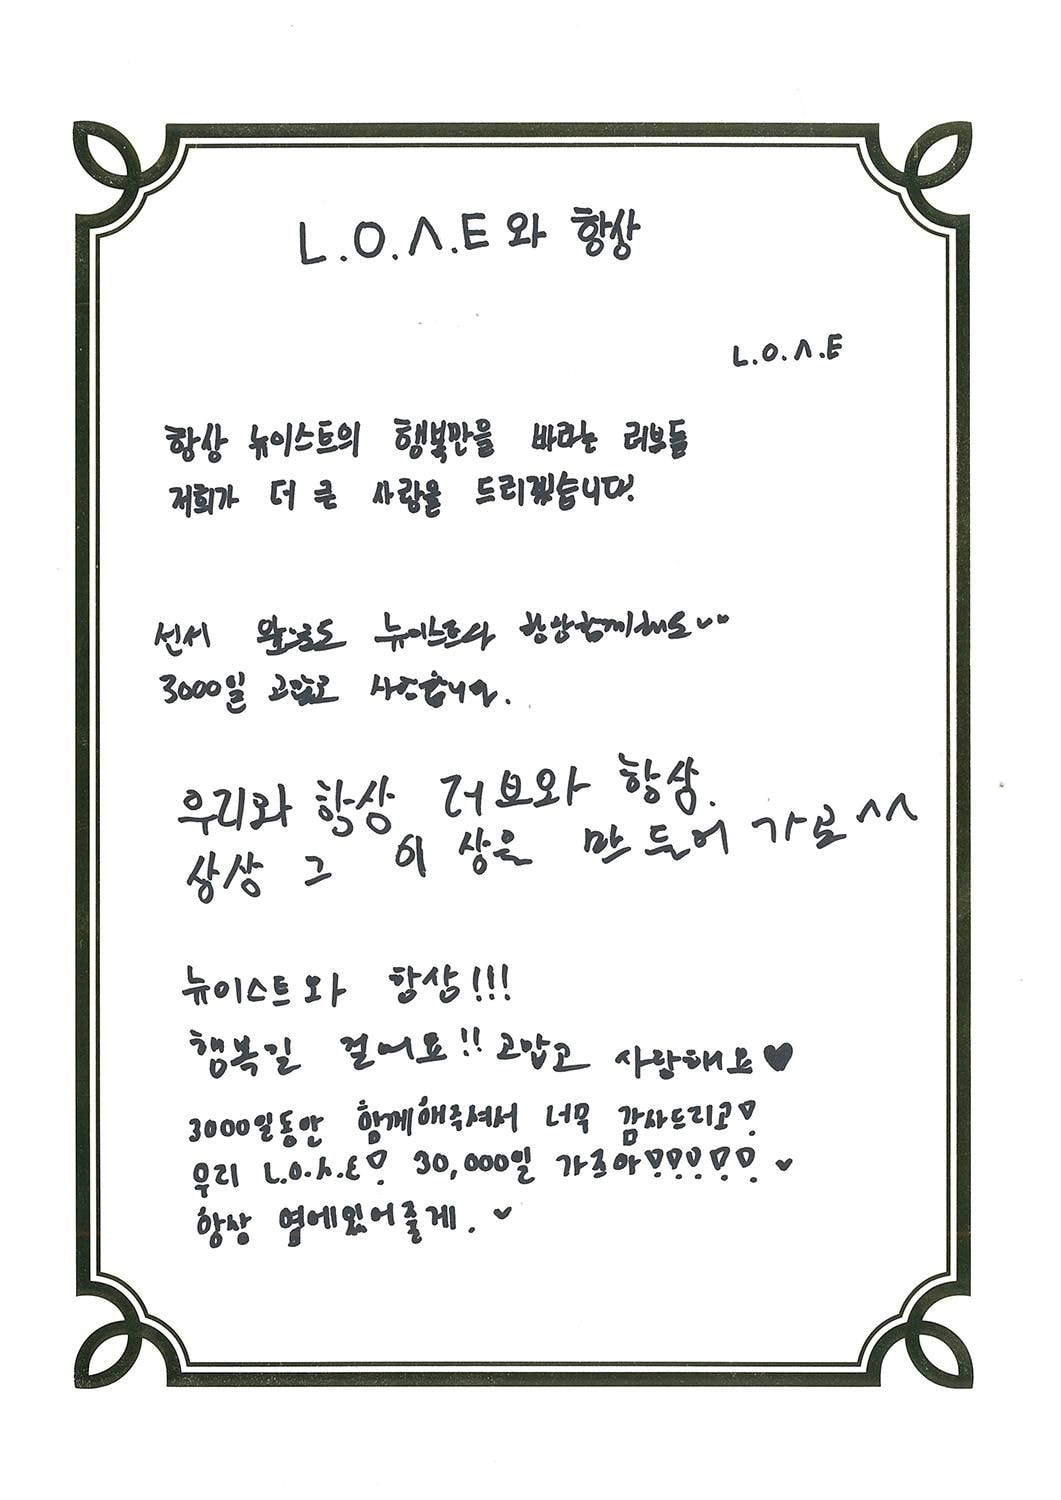 L.O.Λ.E와 항상
L.O.Λ.E
항상 뉴이스트의 행복만을 바라는 러브들
저희가 더 큰 사랑을 드리겠습니다!
선서 앞으로도 뉴이스트와 항상함께해도
3000일 고맙고 사랑합니다.
우리와 항상 러브와 항상.
상상 그 이상을 만들어 가요^^
뉴이스트와 항상!!!
행복길 걸어요!! 고맙고 사랑해요♥
3000일동안 함께해주셔서 너무 감사드리고!
우리 L.O.Λ.E! 30,000일 가즈아!!!!! ♥
항상 옆에있어줄게. ♥